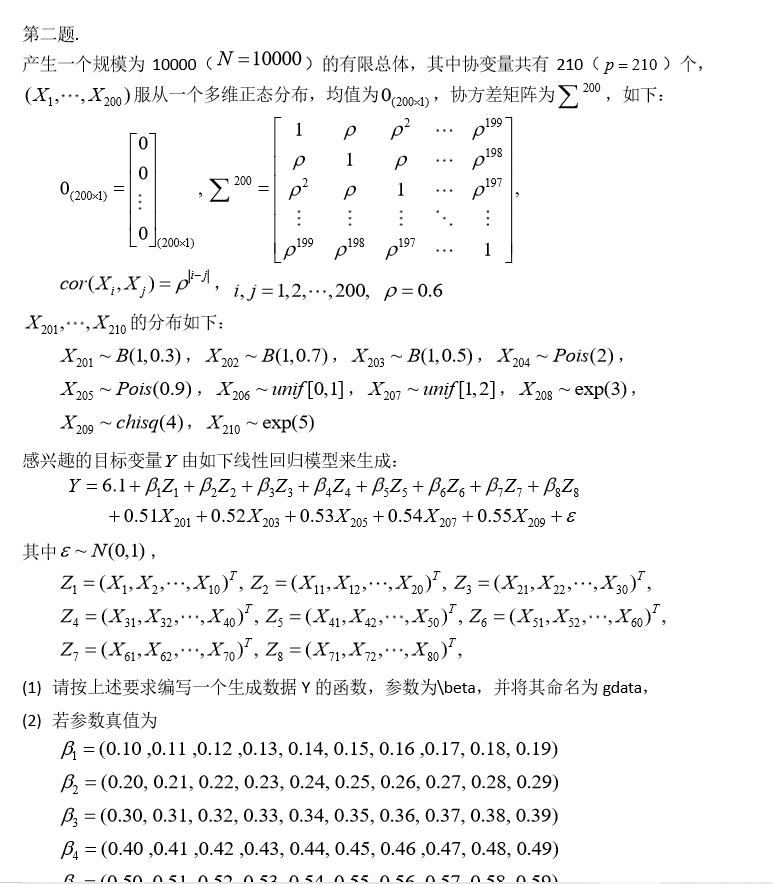 第二题.
产生一个规模为 10000（N = 10000）的有限总体，其中协变量共有 210（p = 210）个，
(X₁,⋯,X₂₀₀)服从一个多维正态分布，均值为0₍₂₀₀ₓ₁₎，协方差矩阵为∑²⁰⁰，如下：
0₍₂₀₀ₓ₁₎ = [0 0 ⋮ 0]₍₂₀₀ₓ₁₎ , ∑²⁰⁰ =
1 ρ ρ² ⋯ ρ¹⁹⁹
ρ 1 ρ ⋯ ρ¹⁹⁸
ρ² ρ 1 ⋯ ρ¹⁹⁷
⋮ ⋮ ⋮ ⋱ ⋮
ρ¹⁹⁹ ρ¹⁹⁸ ρ¹⁹⁷ ⋯ 1 ,
cor(Xᵢ, Xⱼ) = ρ^|i−j|， i, j = 1,2,⋯,200, ρ = 0.6
X₂₀₁,⋯,X₂₁₀的分布如下：
X₂₀₁ ~ B(1,0.3)，X₂₀₂ ~ B(1,0.7)，X₂₀₃ ~ B(1,0.5)，X₂₀₄ ~ Pois(2)，
X₂₀₅ ~ Pois(0.9)，X₂₀₆ ~ unif[0,1]，X₂₀₇ ~ unif[1,2]，X₂₀₈ ~ exp(3)，
X₂₀₉ ~ chisq(4)，X₂₁₀ ~ exp(5)
感兴趣的目标变量Y由如下线性回归模型来生成：
Y = 6.1 + β₁Z₁ + β₂Z₂ + β₃Z₃ + β₄Z₄ + β₅Z₅ + β₆Z₆ + β₇Z₇ + β₈Z₈
+ 0.51X₂₀₁ + 0.52X₂₀₃ + 0.53X₂₀₅ + 0.54X₂₀₇ + 0.55X₂₀₉ + ε
其中ε ~ N(0,1)，
Z₁ = (X₁, X₂,⋯, X₁₀)ᵀ, Z₂ = (X₁₁, X₁₂,⋯, X₂₀)ᵀ, Z₃ = (X₂₁, X₂₂,⋯, X₃₀)ᵀ,
Z₄ = (X₃₁, X₃₂,⋯, X₄₀)ᵀ, Z₅ = (X₄₁, X₄₂,⋯, X₅₀)ᵀ, Z₆ = (X₅₁, X₅₂,⋯, X₆₀)ᵀ,
Z₇ = (X₆₁, X₆₂,⋯, X₇₀)ᵀ, Z₈ = (X₇₁, X₇₂,⋯, X₈₀)ᵀ,
(1) 请按上述要求编写一个生成数据 Y 的函数，参数为\beta，并将其命名为 gdata，
(2) 若参数真值为
β₁ = (0.10 ,0.11 ,0.12 ,0.13, 0.14, 0.15, 0.16 ,0.17, 0.18, 0.19)
β₂ = (0.20, 0.21, 0.22, 0.23, 0.24, 0.25, 0.26, 0.27, 0.28, 0.29)
β₃ = (0.30, 0.31, 0.32, 0.33, 0.34, 0.35, 0.36, 0.37, 0.38, 0.39)
β₄ = (0.40 ,0.41 ,0.42 ,0.43, 0.44, 0.45, 0.46 ,0.47, 0.48, 0.49)